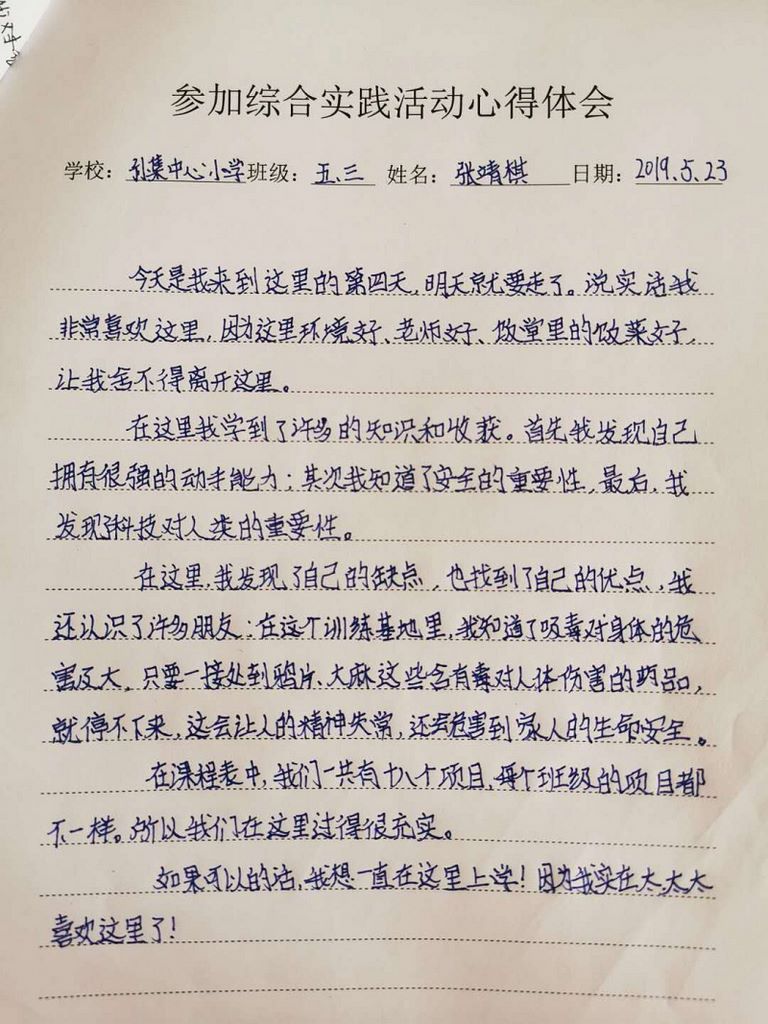 参加综合实践活动心得体会
学校：引集中心小学班级：五.三 姓名：张靖棋 日期：2019.5.23
今天是我来到这里的第四天，明天就要走了。说实话我
非常喜欢这里，因为这里环境好、老师好、饭堂里的饭菜好，
让我舍不得离开这里。
在这里我学到了许多的知识和收获。首先我发现自己
拥有很强的动手能力；其次我知道了安全的重要性，最后，我
发现科技对人类的重要性。
在这里，我发现了自己的缺点，也找到了自己的优点，我
还认识了许多朋友；在这个训练基地里，我知道了吸毒对身体的危
害及大，只要一接处到鸦片、大麻这些含有毒对人体伤害的药品，
就停不下来，这会让人的精神失常，还会危害到家人的生命安全。
在课程表中，我们一共有十八个项目，每个班级的项目都
不一样。所以我们在这里过得很充实。
如果可以的话，我想一直在这里上学！因为我实在太太太
喜欢这里了！